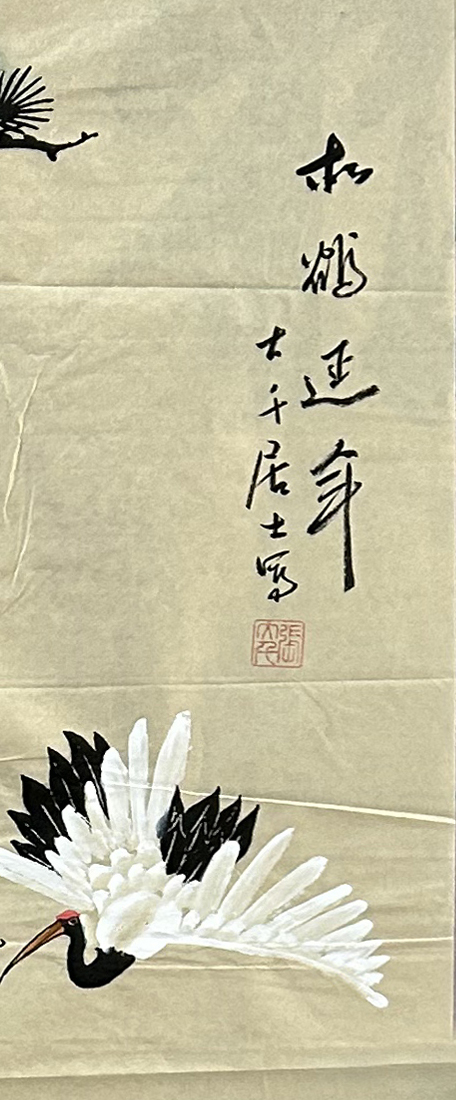 松鶴延年
大千居士寫